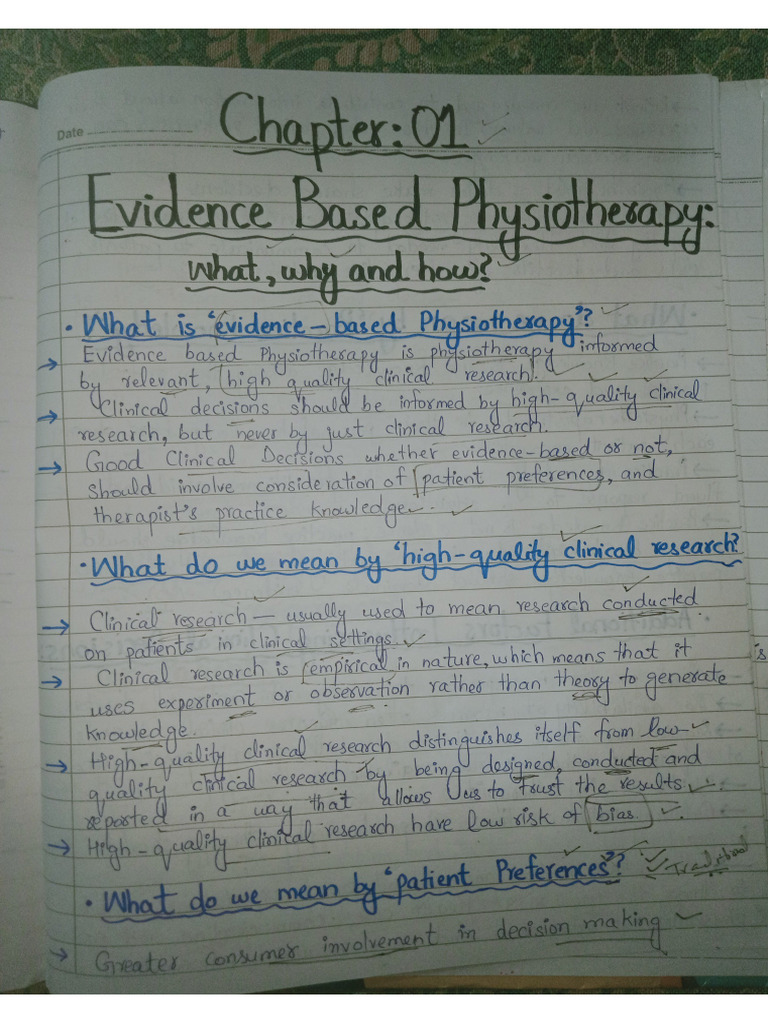 Date
Chapter: 01
Evidence Based Physiotherapy:
What, why and how?
• What is 'evidence-based Physiotherapy'?
→ Evidence based Physiotherapy is physiotherapy informed
by relevant, high quality clinical research.
→ Clinical decisions should be informed by high-quality clinical
research, but never by just clinical research.
→ Good Clinical Decisions whether evidence-based or not,
should involve consideration of patient preferences, and
therapist's practice knowledge.
• What do we mean by 'high-quality clinical research?
→ Clinical research — usually used to mean research conducted
on patients in clinical settings.
→ Clinical research is empirical in nature, which means that it
uses experiment or observation rather than theory to generate
knowledge.
→ High-quality clinical research distinguishes itself from low-
quality clinical research by being designed, conducted and
reported in a way that allows us to trust the results.
→ High-quality clinical research have low risk of bias.
• What do we mean by 'patient Preferences'?
→ Greater consumer involvement in decision making